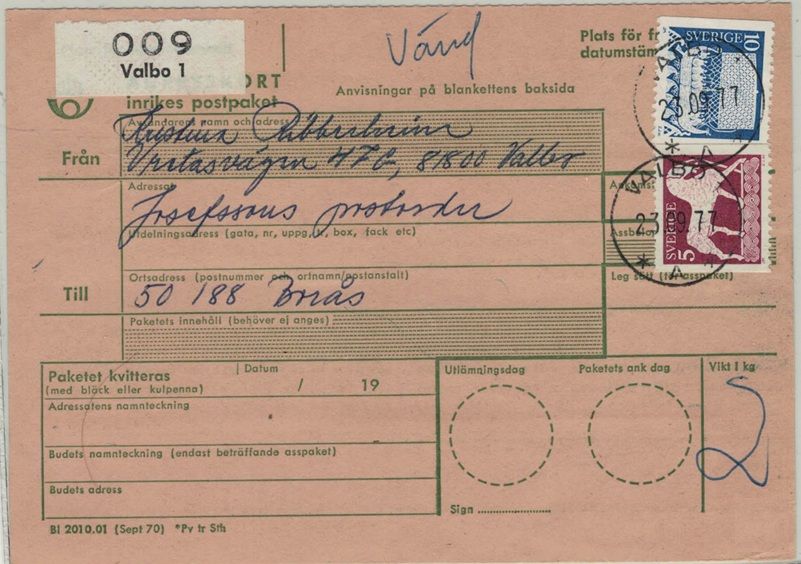 009
Valbo 1
Vänd
Plats för fr
datumstäm
ORT
inrikes postpaket
Anvisningar på blankettens baksida
SVERIGE 10
VALBO 1
23.09.77
* A *
SVERIGE 5
VALBO 1
23.09.77
* A *
Från
Avsändarens namn och adress
Kristina
47c, 81800 Valbo
Adressat
Ankomst
Josefssons postorder
Utdelningsadress (gata, nr, uppg, tr, box, fack etc)
Assbelo
Till
Ortsadress (postnummer och ortnamn/postanstalt)
Leg sätt (för asspaket)
50 188 Borås
Paketets innehåll (behöver ej anges)
Paketet kvitteras
(med bläck eller kulpenna)
Datum
/ 19
Utlämningsdag
Paketets ank dag
Vikt i kg
2
Adressatens namnteckning
Budets namnteckning (endast beträffande asspaket)
Budets adress
Sign
Bl 2010.01 (Sept 70) *Pv tr Sth